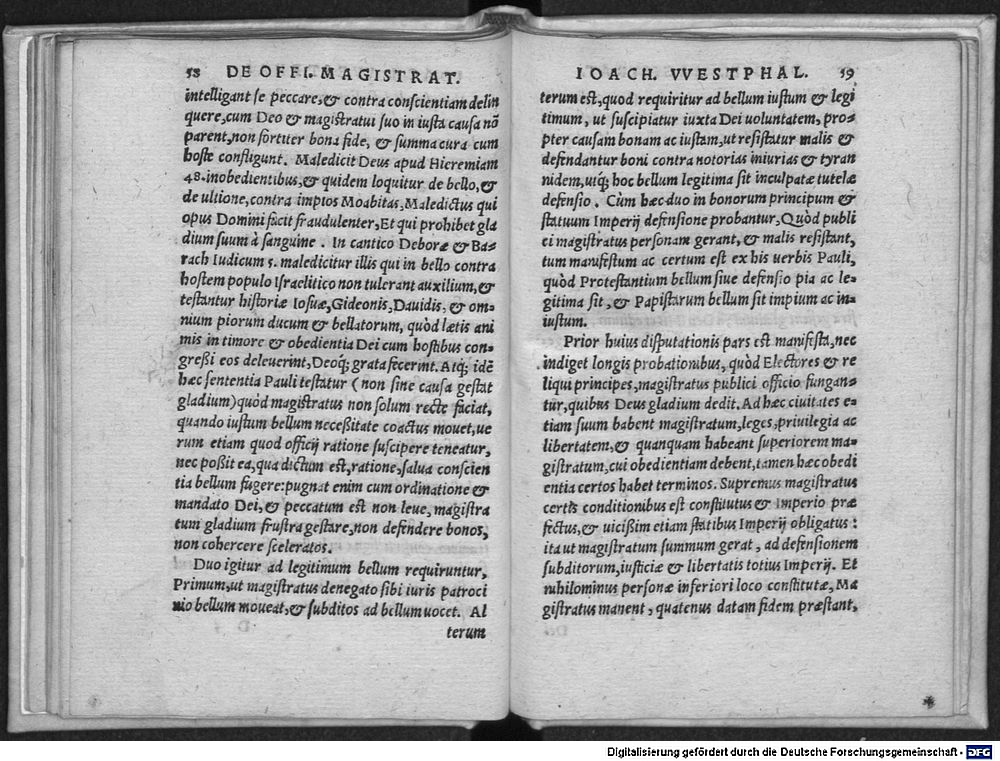 58 DE OFFI. MAGISTRAT.
intelligant se peccare, & contra conscientiam delin
quere, cum Deo & magistratui suo in iusta causa nõ
parent, non fortiter bona fide, & summa cura cum
hoste confligunt. Maledicit Deus apud Hieremiam
48. inobedientibus, & quidem loquitur de bello, &
de ultione, contra impios Moabitas, Maledictus qui
opus Domini facit fraudulenter, Et qui prohibet gla
dium suum à sanguine. In cantico Deboræ & Ba-
rach Iudicum 5. maledicitur illis qui in bello contra
hostem populo Israelitico non tulerant auxilium, &
testantur historiæ Iosuæ, Gideonis, Dauidis, & om-
nium piorum ducum & bellatorum, quòd lætis ani
mis in timore & obedientia Dei cum hostibus con-
greßi eos deleuerint, Deoq; grata fecerint. Atq; idẽ
hæc sententia Pauli testatur (non sine causa gestat
gladium) quòd magistratus non solum recte faciat,
quando iustum bellum neceßitate coactus mouet, ue
rum etiam quod officij ratione suscipere teneatur,
nec poßit ea, qua dictum est, ratione, salua conscien
tia bellum fugere: pugnat enim cum ordinatione &
mandato Dei, & peccatum est non leue, magistra
tum gladium frustra gestare, non defendere bonos,
non cohercere sceleratos.
Duo igitur ad legitimum bellum requiruntur,
Primum, ut magistratus denegato sibi iuris patroci
nio bellum moueat, & subditos ad bellum uocet. Al
terum
IOACH. VVESTPHAL. 59
terum est, quod requiritur ad bellum iustum & legi
timum, ut suscipiatur iuxta Dei uoluntatem, pro-
pter causam bonam ac iustam, ut resistatur malis &
defendantur boni contra notorias iniurias & tyran
nidem, utq; hoc bellum legitima sit inculpatæ tutelæ
defensio. Cùm hæc duo in bonorum principum &
statuum Imperij defensione probantur, Quòd publi
ci magistratus personam gerant, & malis resistant,
tum manifestum ac certum est ex his uerbis Pauli,
quòd Protestantium bellum siue defensio pia ac le-
gitima sit, & Papistarum bellum sit impium ac in-
iustum.
Prior huius disputationis pars est manifesta, nec
indiget longis probationibus, quòd Electores & re
liqui principes, magistratus publici officio fungan-
tur, quibus Deus gladium dedit. Ad hæc ciuitates e-
tiam suum habent magistratum, leges, priuilegia ac
libertatem, & quanquam habeant superiorem ma-
gistratum, cui obedientiam debent, tamen hæc obedi
entia certos habet terminos. Supremus magistratus
certis conditionibus est constitutus & Imperio præ
fectus, & uicißim etiam statibus Imperij obligatus:
ita ut magistratum summum gerat, ad defensionem
subditorum, iusticiæ & libertatis totius Imperij. Et
nihilominus personæ inferiori loco constitutæ, Ma
gistratus manent, quatenus datam fidem præstant,
Digitalisierung gefördert durch die Deutsche Forschungsgemeinschaft - DFG